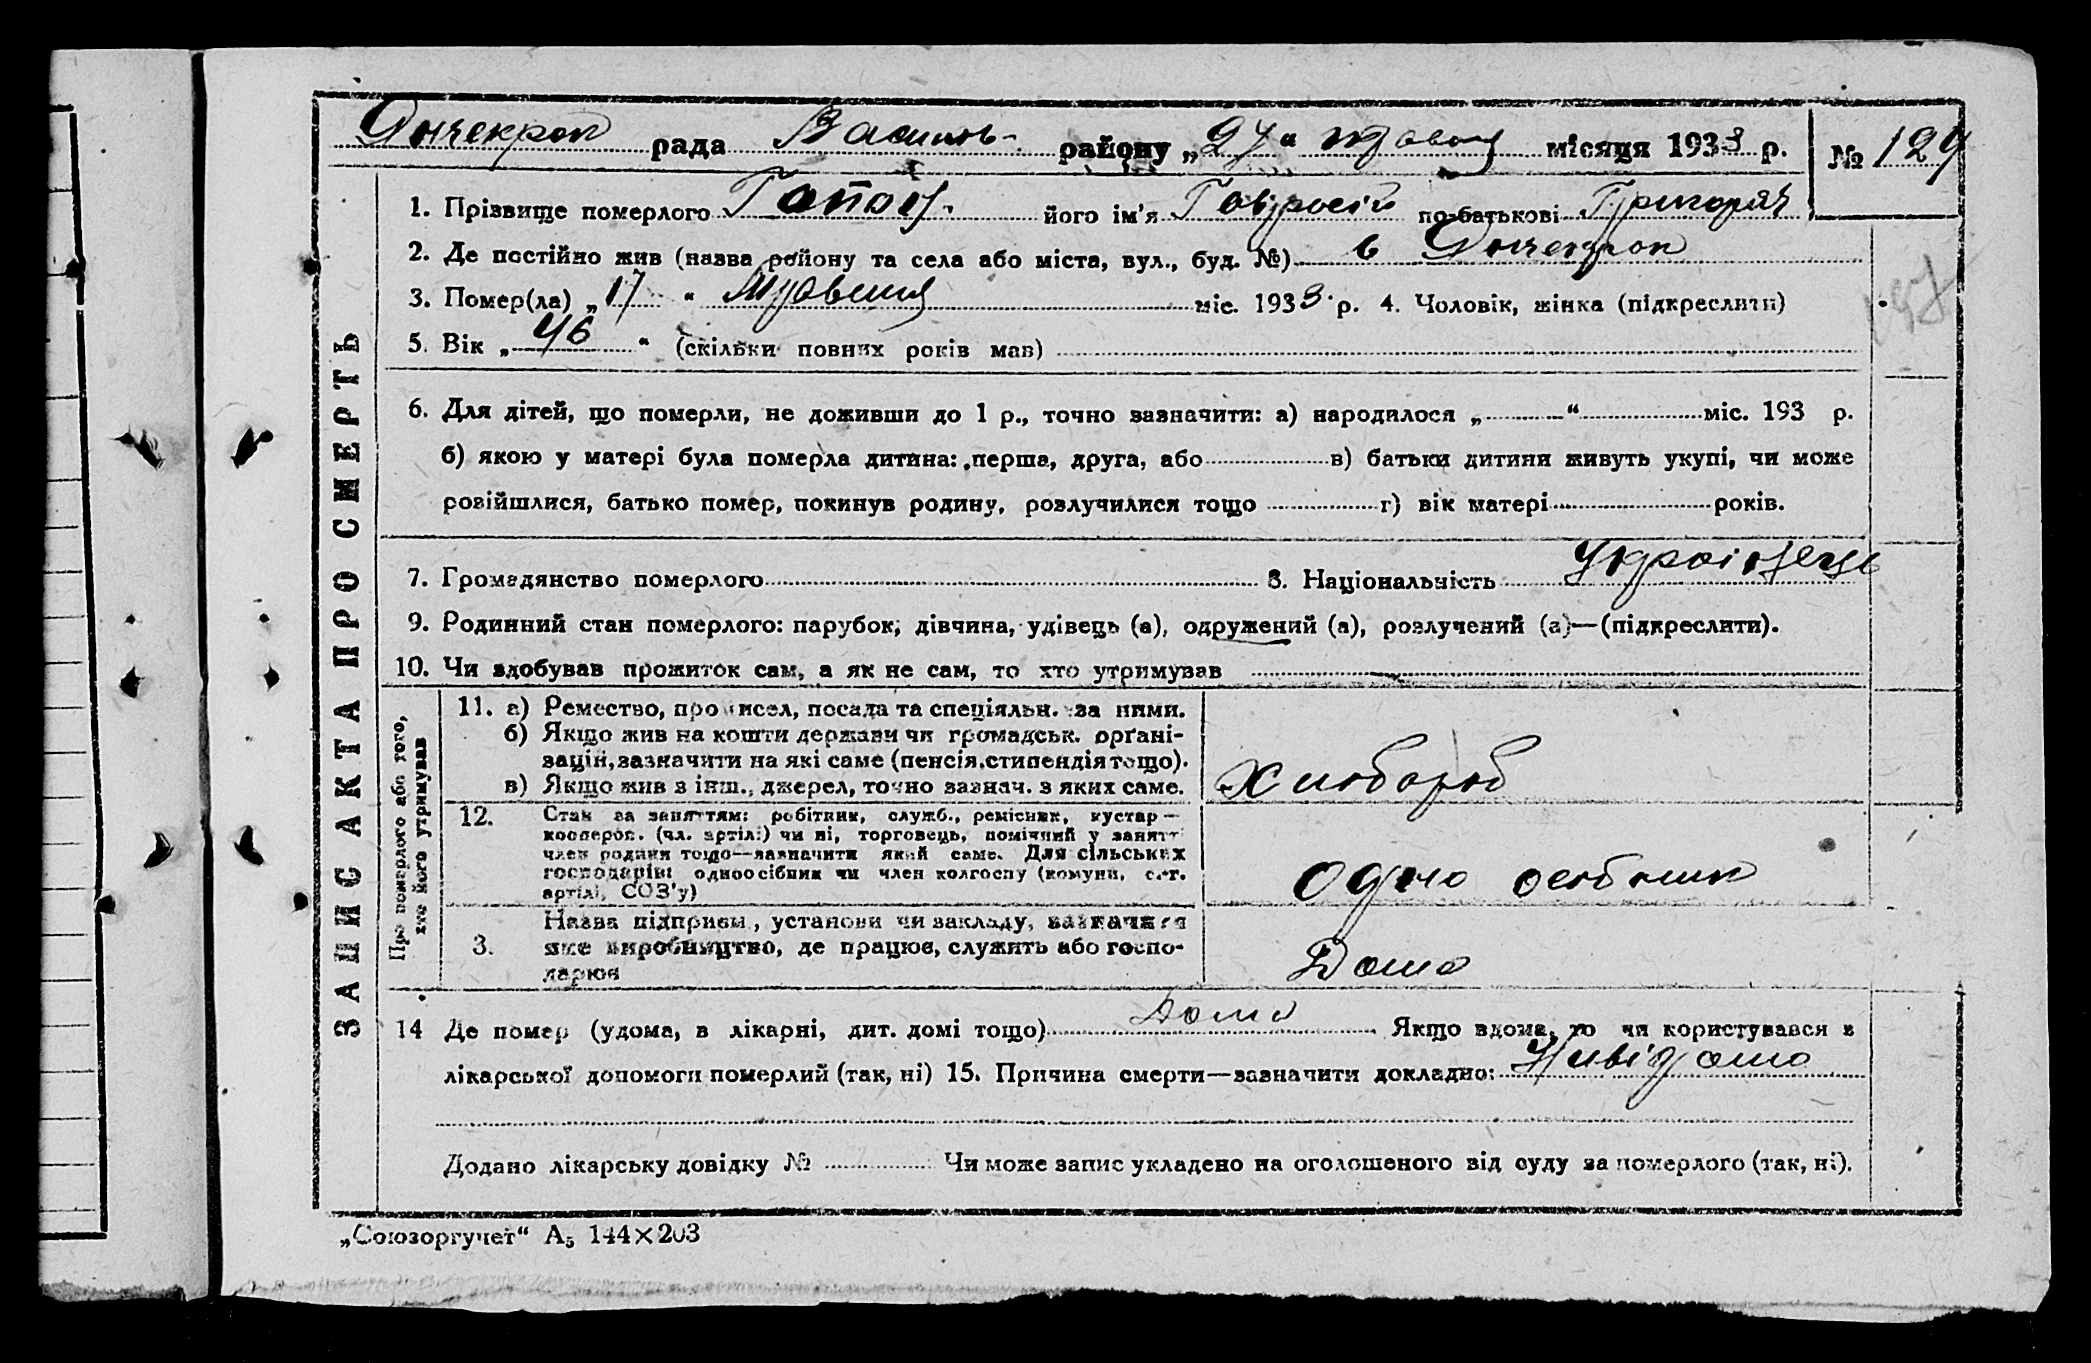 рада Василь- району „27“ травня місяця 1933 р. № 127
1. Прізвище померлого його ім'я по-батькові Григоріяч
2. Де постійно жив (назва району та села або міста, вул., буд. №) в
3. Помер(ла) „17“ Травня міс. 1933 р. 4. Чоловік, жінка (підкреслити)
5. Вік „46“ (скільки повних років мав)
6. Для дітей, що померли, не доживши до 1 р., точно зазначити: а) народилося „ “ міс. 193 р.
б) якою у матері була померла дитина: перша, друга, або в) батьки дитини живуть укупі, чи може
розійшлися, батько помер, покинув родину, розлучилися тощо г) вік матері років.
7. Громадянство померлого 8. Національність Українець
9. Родинний стан померлого: парубок, дівчина, удівець (а), одружений (а), розлучений (а)—(підкреслити).
10. Чи здобував прожиток сам, а як не сам, то хто утримував
ЗАПИС АКТА ПРО СМЕРТЬ
Про померлого або того,
хто його утримував
11. а) Ремество, промисел, посада та спеціяльн. за ними.
б) Якщо жив на кошти держави чи громадськ. органі-
зацій, зазначити на які саме (пенсія, стипендія тощо).
в) Якщо жив з інш., джерел, точно зазнач. з яких саме.
Хлібороб
12. Стан за заняттям: робітник, служб., ремісник, кустар—
кооперов. (чл. артілі) чи ні, торговець, помічний у занятті
член родини тощо—зазначити який саме. Для сільських
господарів: одноосібник чи член колгоспу (комуни, с.-г.
артілі, СОЗ'у)
Одно осібник
Назва підприєм., установи чи закладу, зазначити
3. яке виробництво, де працює, служить або госпо-
дарює
Дома
14 Де помер (удома, в лікарні, дит. домі тощо) Дома Якщо вдома, то чи користувався з
лікарської допомоги померлий (так, ні) 15. Причина смерти—зазначити докладно: Нивідомо
Додано лікарську довідку № Чи може запис укладено на оголошеного від суду за померлого (так, ні).
„Союзоргучет“ А5 144×203